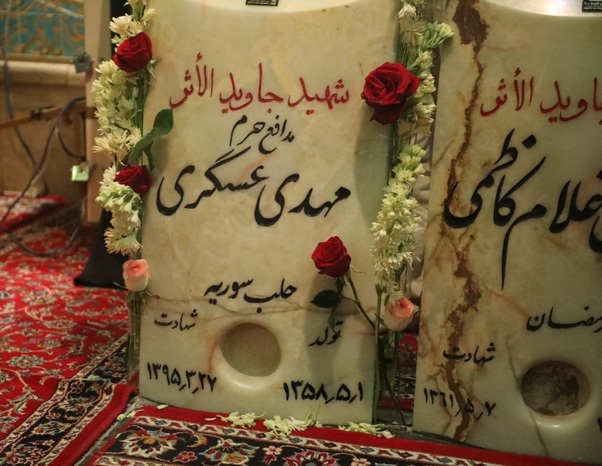 شهید جاوید الأثر
مدافع حرم
مهدی عسگری
حلب سوریه
تولد
شهادت
۱۳۵۸٫۵٫۱
۱۳۹۵٫۳٫۲۲
جاوید الأثر
غلام کاظمی
شهادت
۱۳۶۱٫۵٫۷